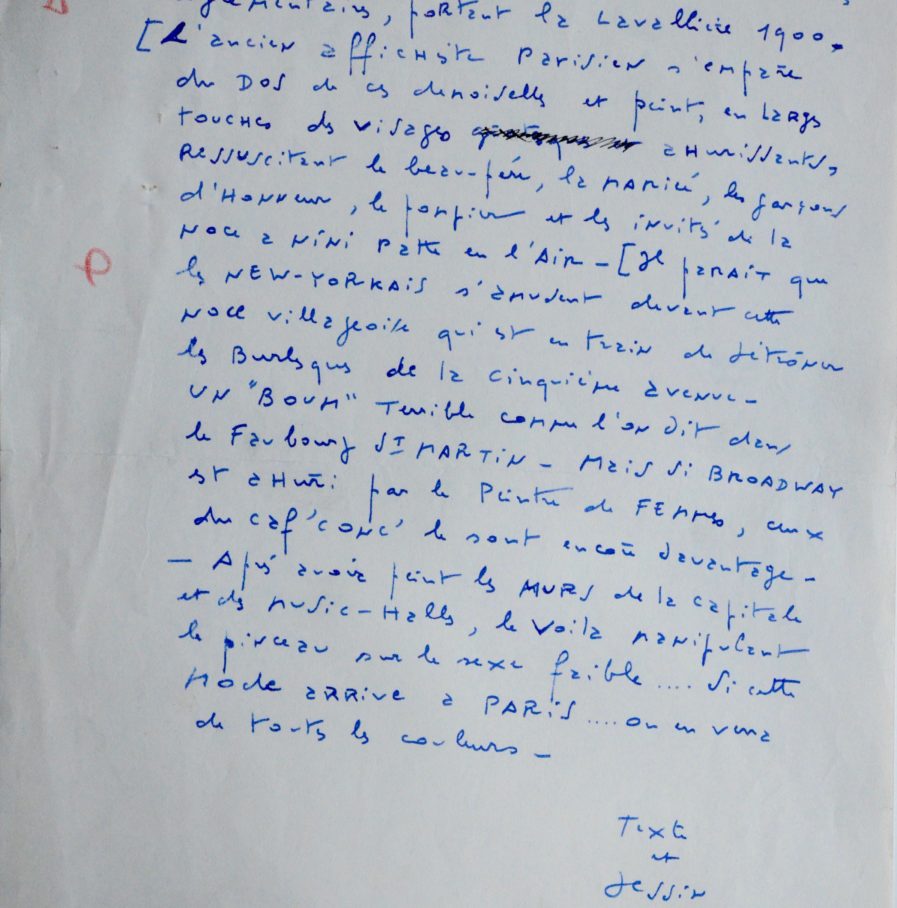 portant la Lavallière 1900.
[L'ancien affichiste Parisien s'empare
du DOS de ces demoiselles et peint, en Larges
touches des visages ahurissants,
Ressuscitant le beau-père, la mariée, les garçons
d'Honneur, le pompier et les invités de la
Noce a NiNi Patte en l'Air - [Il parait que
les NEW-YORKAIS s'amusent devant cette
Noce villageoise qui est en train de détrôner
les Burlesques de la cinquième avenue -
UN "BOUM" Terrible comme l'on dit dans
le Faubourg St MARTIN - Mais Si BROADWAY
est ahuri par le Peintre de FEMMES, ceux
du caf'conc' le sont encore davantage -
- Après avoir peint les MURS de la capitale
et des music-Halls, le voilà manipulant
le pinceau sur le sexe faible .... Si cette
Mode ARRive a PARIS .... on en verra
de toutes les couleurs -
Texte
et
dessin